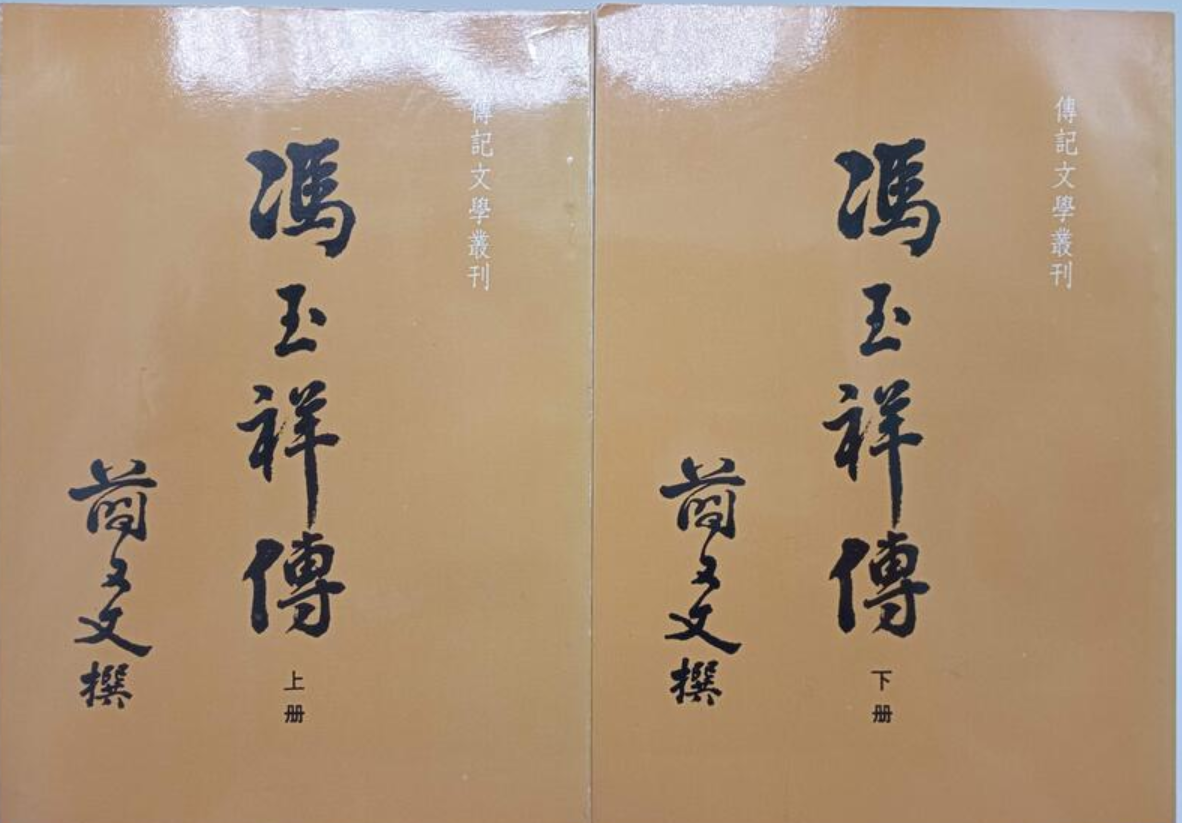 傳記文學叢刊
馮玉祥傳
上册
簡又文撰
傳記文學叢刊
馮玉祥傳
下册
簡又文撰